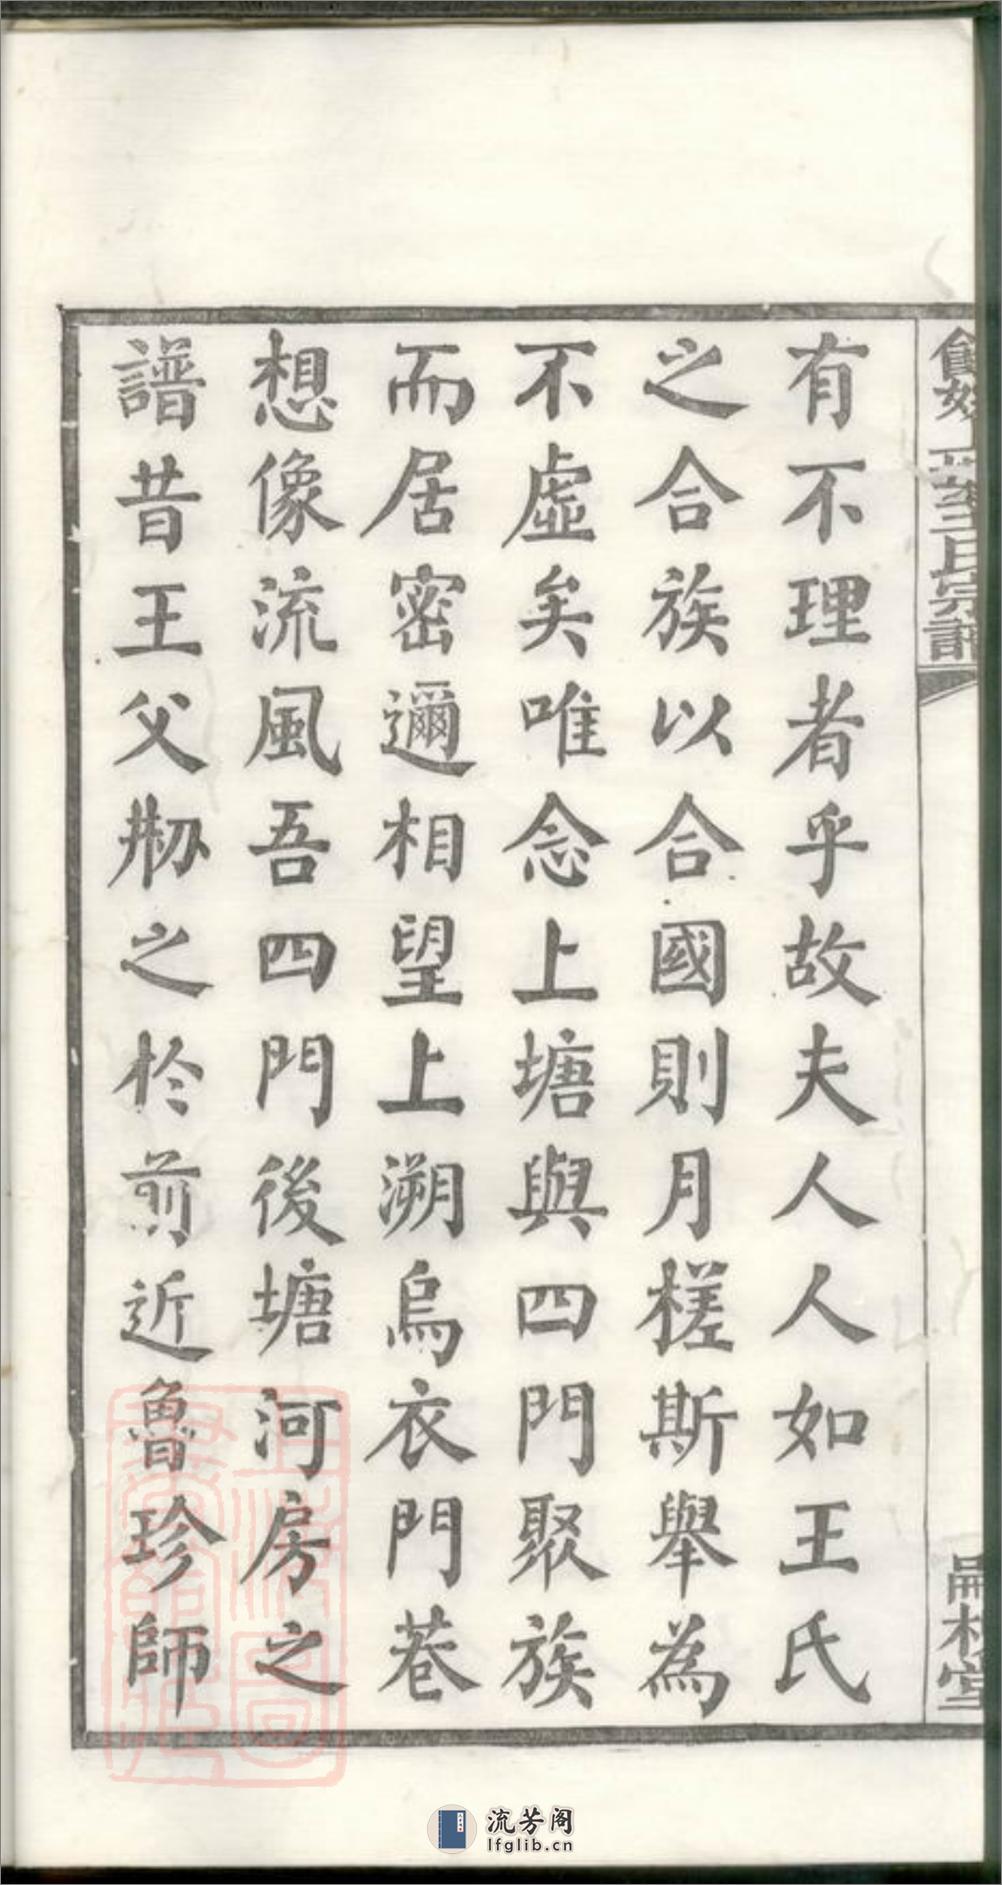 有不理者乎故夫人人如王氏
之合族以合國則月槎斯舉為
不虛矣唯念上塘與四門聚族
而居密邇相望上溯烏衣門巷
想像流風吾四門後塘河房之
譜昔王父剏之於前近魯珍師
王氏宗譜
流芳阁
lfglib.cn